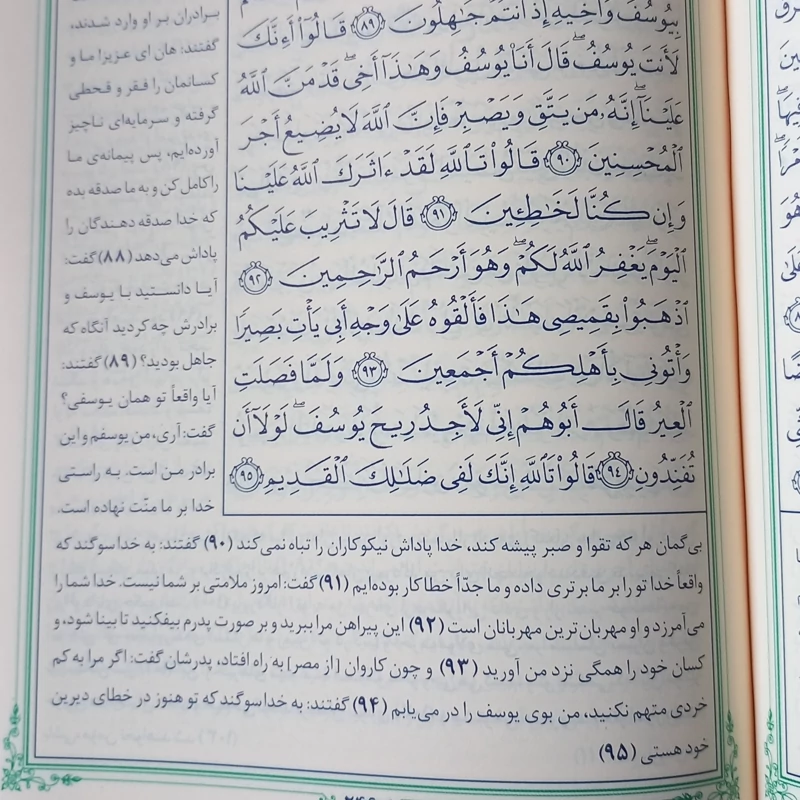 بِيُوسُفَ وَأَخِيهِ إِذْ أَنتُمْ جَٰهِلُونَ ﴿٨٩﴾ قَالُوٓا۟ أَءِنَّكَ
لَأَنتَ يُوسُفُ ۖ قَالَ أَنَا۠ يُوسُفُ وَهَٰذَآ أَخِى ۖ قَدْ مَنَّ ٱللَّهُ
عَلَيْنَآ ۖ إِنَّهُۥ مَن يَتَّقِ وَيَصْبِرْ فَإِنَّ ٱللَّهَ لَا يُضِيعُ أَجْرَ
ٱلْمُحْسِنِينَ ﴿٩٠﴾ قَالُوا۟ تَٱللَّهِ لَقَدْ ءَاثَرَكَ ٱللَّهُ عَلَيْنَا
وَإِن كُنَّا لَخَٰطِـِٔينَ ﴿٩١﴾ قَالَ لَا تَثْرِيبَ عَلَيْكُمُ
ٱلْيَوْمَ ۖ يَغْفِرُ ٱللَّهُ لَكُمْ ۖ وَهُوَ أَرْحَمُ ٱلرَّٰحِمِينَ ﴿٩٢﴾
ٱذْهَبُوا۟ بِقَمِيصِى هَٰذَا فَأَلْقُوهُ عَلَىٰ وَجْهِ أَبِى يَأْتِ بَصِيرًا
وَأْتُونِى بِأَهْلِكُمْ أَجْمَعِينَ ﴿٩٣﴾ وَلَمَّا فَصَلَتِ
ٱلْعِيرُ قَالَ أَبُوهُمْ إِنِّى لَأَجِدُ رِيحَ يُوسُفَ ۖ لَوْلَآ أَن
تُفَنِّدُونِ ﴿٩٤﴾ قَالُوا۟ تَٱللَّهِ إِنَّكَ لَفِى ضَلَٰلِكَ ٱلْقَدِيمِ ﴿٩٥﴾
برادران بر او وارد شدند،
گفتند: هان ای عزیز! ما و
کسانمان را فقر و قحطی
گرفته و سرمایه‌ای ناچیز
آورده‌ایم، پس پیمانه‌ی ما
را کامل کن و به ما صدقه بده
که خدا صدقه دهندگان را
پاداش می‌دهد (۸۸) گفت:
آیا دانستید با یوسف و
برادرش چه کردید آنگاه که
جاهل بودید؟ (۸۹) گفتند:
آیا واقعاً تو همان یوسفی؟
گفت: آری، من یوسفم و این
برادر من است. به راستی
خدا بر ما منّت نهاده است.
بی‌گمان هر که تقوا و صبر پیشه کند، خدا پاداش نیکوکاران را تباه نمی‌کند (۹۰) گفتند: به خدا سوگند که
واقعاً خدا تو را بر ما برتری داده و ما جدّاً خطاکار بوده‌ایم (۹۱) گفت: امروز ملامتی بر شما نیست. خدا شما را
می‌آمرزد و او مهربان ترین مهربانان است (۹۲) این پیراهن مرا ببرید و بر صورت پدرم بیفکنید تا بینا شود، و
کسان خود را همگی نزد من آورید (۹۳) و چون کاروان [از مصر] به راه افتاد، پدرشان گفت: اگر مرا به کم
خردی متهم نکنید، من بوی یوسف را در می‌یابم (۹۴) گفتند: به خدا سوگند که تو هنوز در خطای دیرین
خود هستی (۹۵)